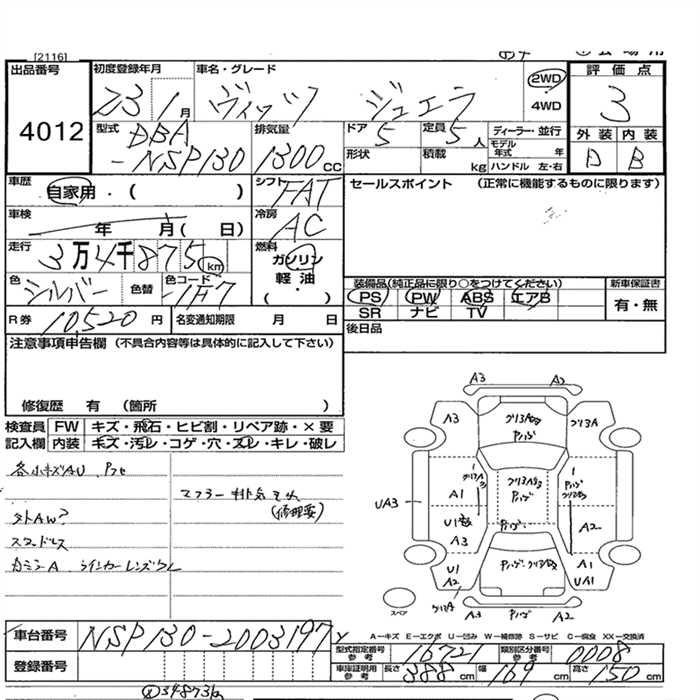 [2116]
出品番号
4012
初度登録年月
23 1月
車名・グレード
ヴィッツ ジュエラ
2WD
4WD
評価点
3
外装 内装
D B
型式
DBA
-NSP130
排気量
1300CC
ドア
5
定員
5人
ディーラー・並行
モデル年式 年
形状
積載 kg
ハンドル 左・右
車歴
自家用・( )
シフト
FAT
セールスポイント (正常に機能するものに限ります)
車検
年 月( 日)
冷房
AC
走行
3万4千875km
燃料
ガソリン
軽油
( ・ )
色
シルバー
色替
色コード
-1F7
装備品(純正品に限り○をつけてください)
新車保証書
PS PW ABS エアB
SR ナビ TV
有・無
R券 10,520円
名変通知期限 月 日
後日品
注意事項申告欄 (不具合内容等は具体的に記入して下さい)
修復歴 有 (箇所 )
検査員 FW キズ・飛石・ヒビ割・リペア跡・×要
記入欄 内装 キズ・汚レ・コゲ・穴・スレ・キレ・破レ
各小キズAU
マフラー排気もれ
(修理要)
外AW?
スタッドレス
カミラーA ウインカーレンズワレ
A3 A3
A3
クリアA
A1
UA3
A3
A2
U1
A2
A1
UA1
クリアA
A3 A2
スペア
A－キズ E－エクボ U－凹み W－補修跡 S－サビ C－腐食 XX－交換済
車台番号 NSP130-2003197
登録番号
型式指定番号 参考 16721
類別区分番号 参考 0008
車庫証明用 参考 長さ 388cm 幅 169cm 高さ 150cm